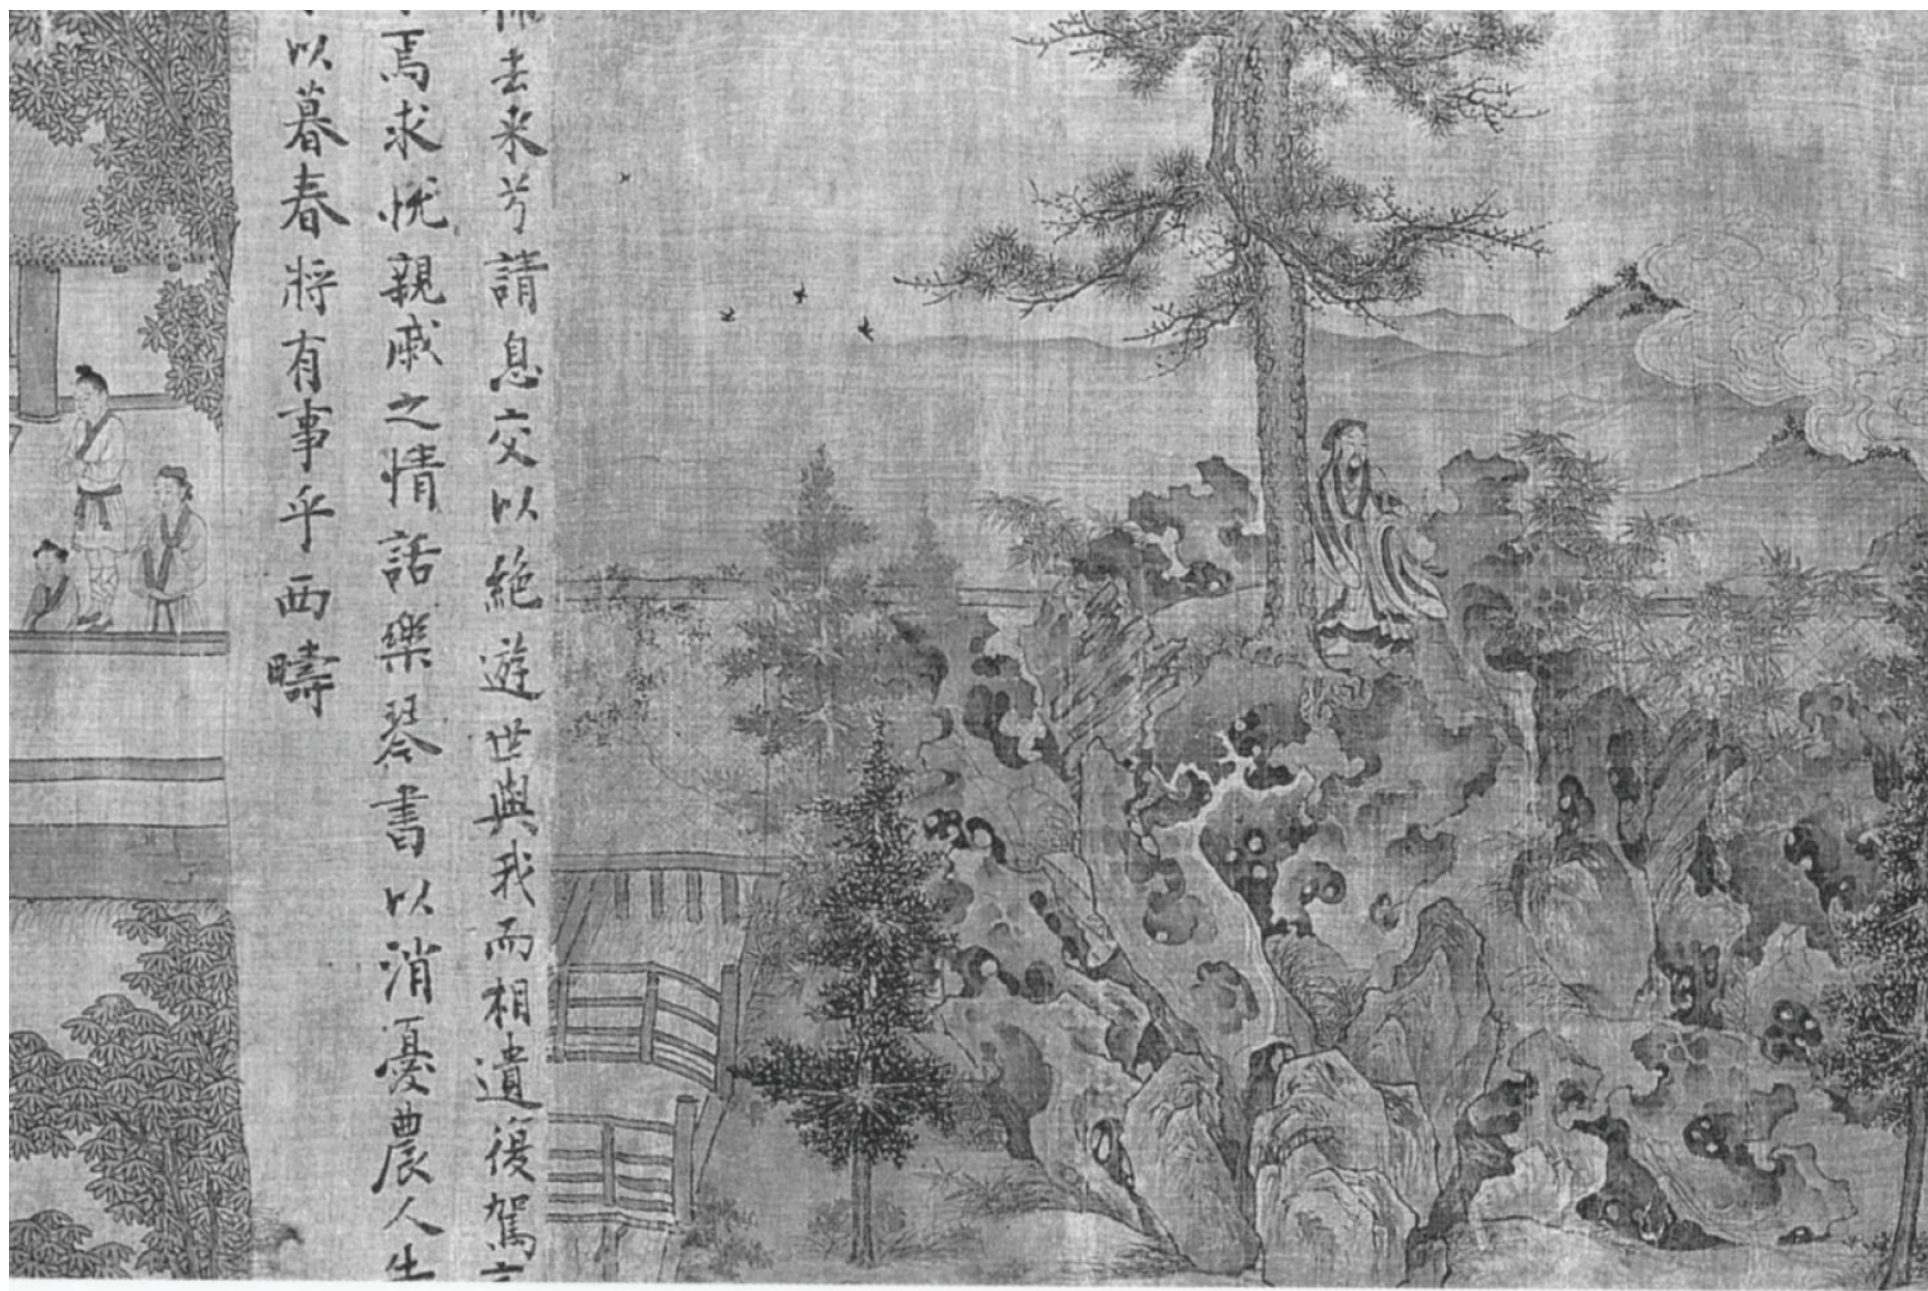 去来兮請息交以絶遊世與我而相遺復駕
焉求悦親戚之情話樂琴書以消憂農人
以暮春將有事乎西疇